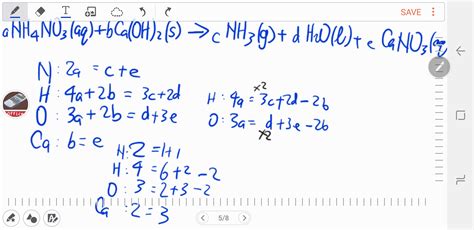 SAVE
aNH4NO3(aq)+bCa(OH)2(s)→cNH3(g)+dH2O(l)+e CaNO3(aq
N: 2a = c+e
H: 4a+2b = 3c+2d
O: 3a+2b = d+3e
Ca: b=e
×2
H: 4a = 3c+2d-2b
O: 3a = d+3e-2b
×2
H: 2 = 1+1
H: 4 = 6+2-2
O: 3 = 2+3-2
Ca: 2 = 3
5/8